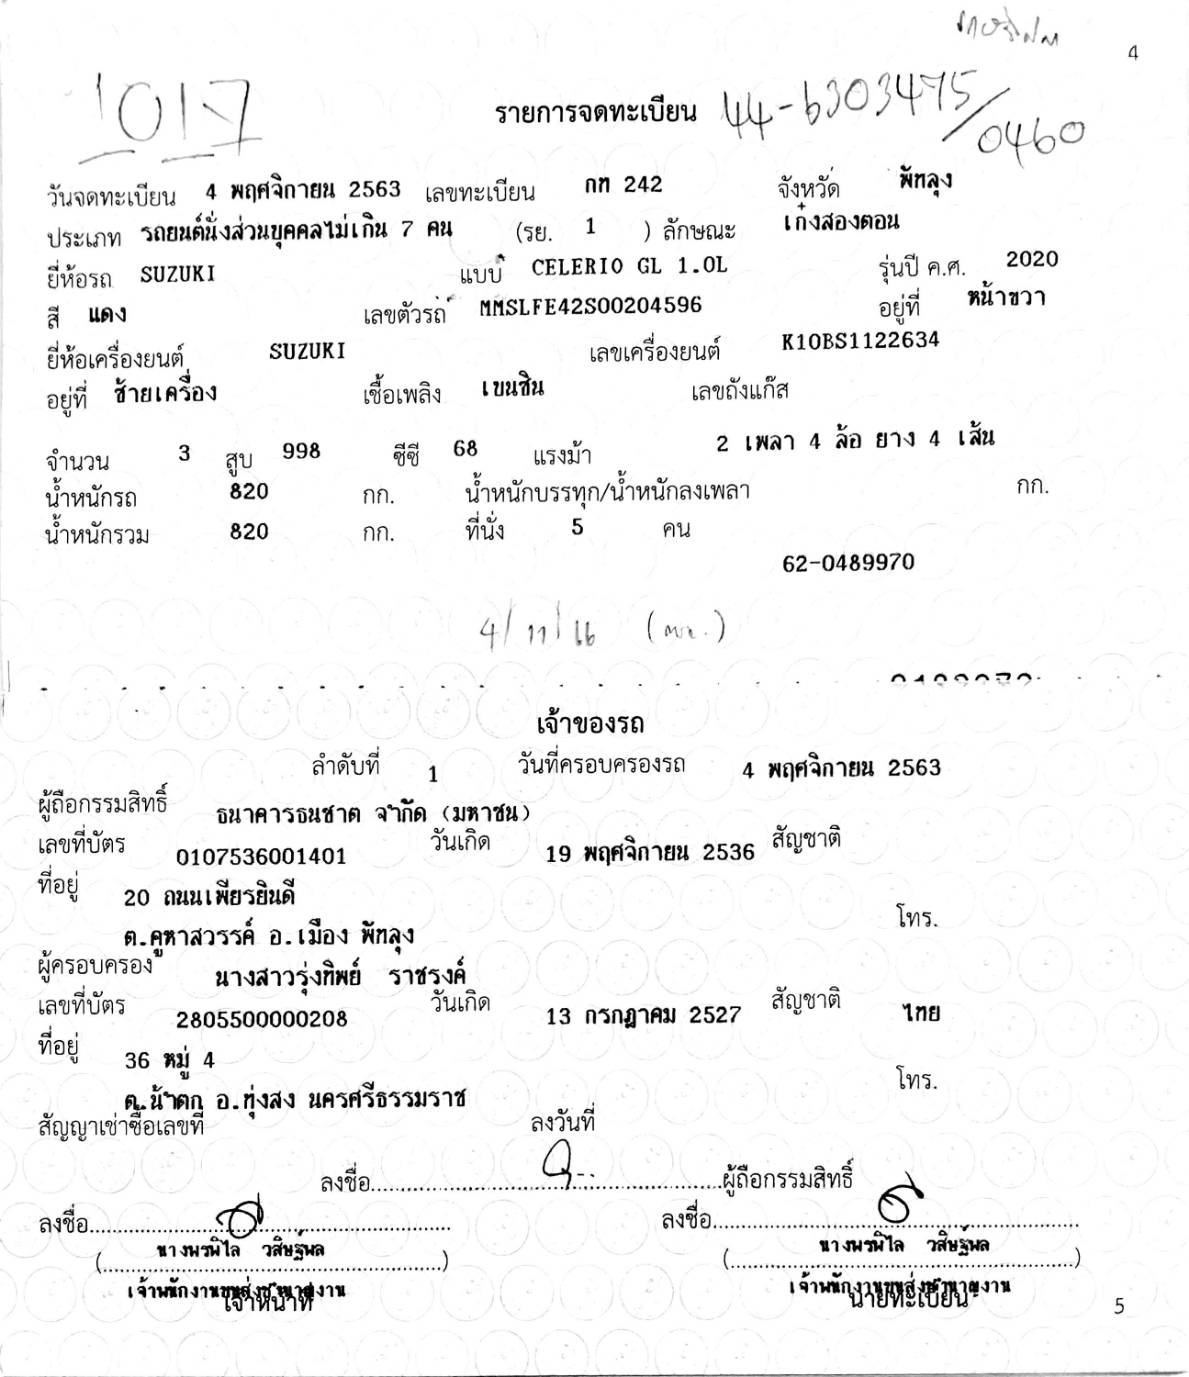 4
1017
รายการจดทะเบียน 44-6303475/0460
วันจดทะเบียน 4 พฤศจิกายน 2563 เลขทะเบียน กท 242 จังหวัด พัทลุง
ประเภท รถยนต์นั่งส่วนบุคคลไม่เกิน 7 คน (รย. 1 ) ลักษณะ เก๋งสองตอน
ยี่ห้อรถ SUZUKI แบบ CELERIO GL 1.0L รุ่นปี ค.ศ. 2020
สี แดง เลขตัวรถ MMSLFE42S00204596 อยู่ที่ หน้าขวา
ยี่ห้อเครื่องยนต์ SUZUKI เลขเครื่องยนต์ K10BS1122634
อยู่ที่ ซ้ายเครื่อง เชื้อเพลิง เบนซิน เลขถังแก๊ส
จำนวน 3 สูบ 998 ซีซี 68 แรงม้า 2 เพลา 4 ล้อ ยาง 4 เส้น
น้ำหนักรถ 820 กก. น้ำหนักบรรทุก/น้ำหนักลงเพลา กก.
น้ำหนักรวม 820 กก. ที่นั่ง 5 คน
62-0489970
4/11/66
เจ้าของรถ
ลำดับที่ 1 วันที่ครอบครองรถ 4 พฤศจิกายน 2563
ผู้ถือกรรมสิทธิ์ ธนาคารธนชาต จำกัด (มหาชน)
เลขที่บัตร 0107536001401 วันเกิด 19 พฤศจิกายน 2536 สัญชาติ
ที่อยู่ 20 ถนนเพียรยินดี
ต.คูหาสวรรค์ อ.เมือง พัทลุง โทร.
ผู้ครอบครอง นางสาวรุ่งทิพย์ ราชรงค์
เลขที่บัตร 2805500000208 วันเกิด 13 กรกฎาคม 2527 สัญชาติ ไทย
ที่อยู่ 36 หมู่ 4
ต.น้ำตก อ.ทุ่งสง นครศรีธรรมราช โทร.
สัญญาเช่าซื้อเลขที่ ลงวันที่
ลงชื่อ................................................ผู้ถือกรรมสิทธิ์
ลงชื่อ................................................ ลงชื่อ................................................
(นางพรพิไล วสิษฐ์พล) (นางพรพิไล วสิษฐ์พล)
เจ้าพนักงานขนส่งชำนาญงาน เจ้าพนักงานขนส่งชำนาญงาน
เจ้าหน้าที่ นายทะเบียน
5